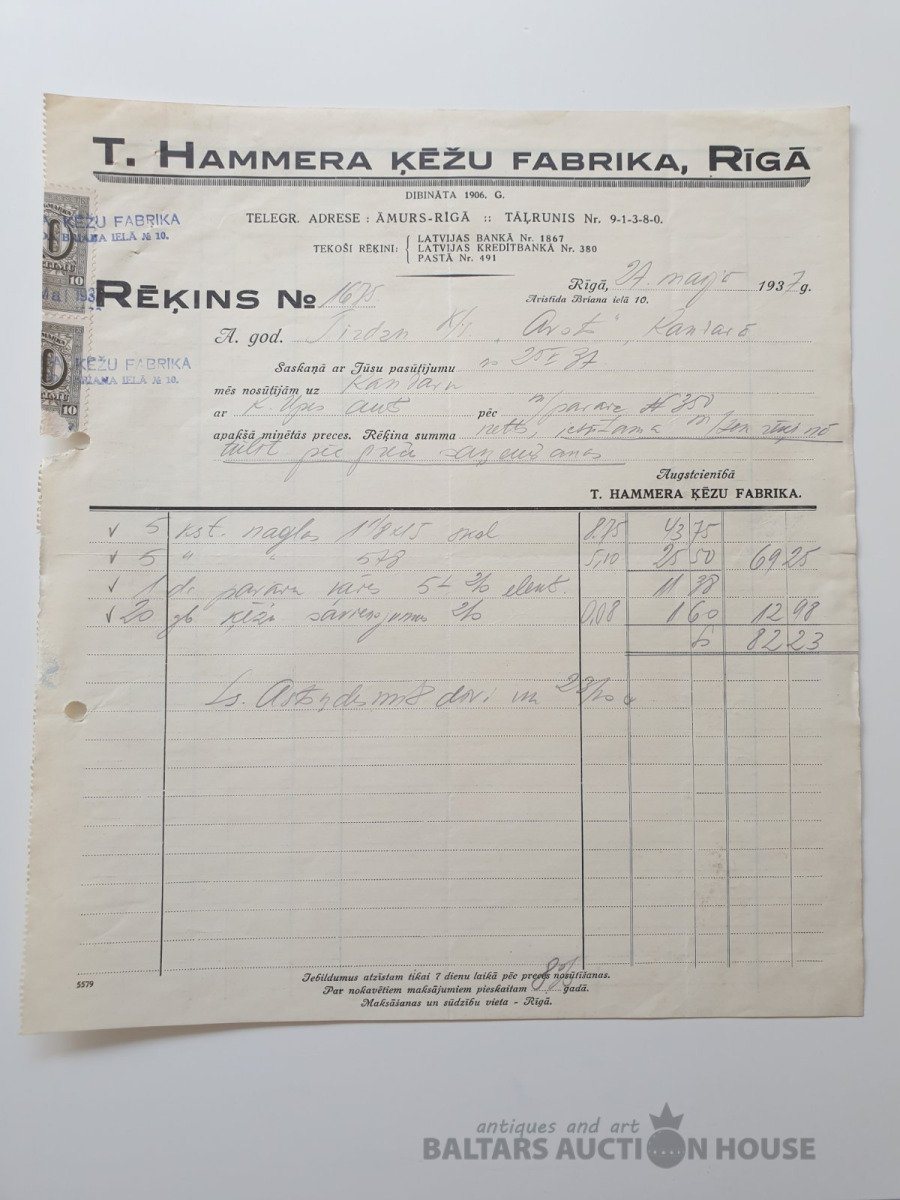 T. HAMMERA ĶĒŽU FABRIKA, RĪGĀ
DIBINĀTA 1906. G.
TELEGR. ADRESE : ĀMURS-RĪGĀ :: TĀĻRUNIS Nr. 9-1-3-8-0.
TEKOŠI RĒĶINI: { LATVIJAS BANKĀ Nr. 1867
LATVIJAS KREDITBANKĀ Nr. 380
PASTĀ Nr. 491
ĶĒŽU FABRIKA
BRIANA IELĀ № 10.
10
Mai 193
RĒĶINS № 1675.
Rīgā, 27. maijā 1937g.
Aristīda Briana ielā 10.
A. god. "Arsts" Kandavā
Saskaņā ar Jūsu pasūtījumu no 25 I 37
ĶĒŽU FABRIKA
BRIANA IELĀ № 10.
10
mēs nosūtījām uz Kandavu
ar K. Upes auto pēc № 350
apakšā minētās preces. Rēķina summa netto,
tūlīt pēc preču saņemšanas
Augstcienībā
T. HAMMERA ĶĒŽU FABRIKA.
√ 5 kst. naglas 8.75 43 75
√ 5 " " 5,10 25 50 69 25
√ 1 11 38
√ 20 gb ķēžu savienojumus 0,08 1 60 12 98
82 23
Ls. Astoņdesmit divi un 23/100
Iebildumus atzīstam tikai 7 dienu laikā pēc preces nosūtīšanas.
Par nokavētiem maksājumiem pieskaitam 8% gadā.
Maksāšanas un sūdzību vieta - Rīgā.
5579
antiques and art
BALTARS AUCTION HOUSE